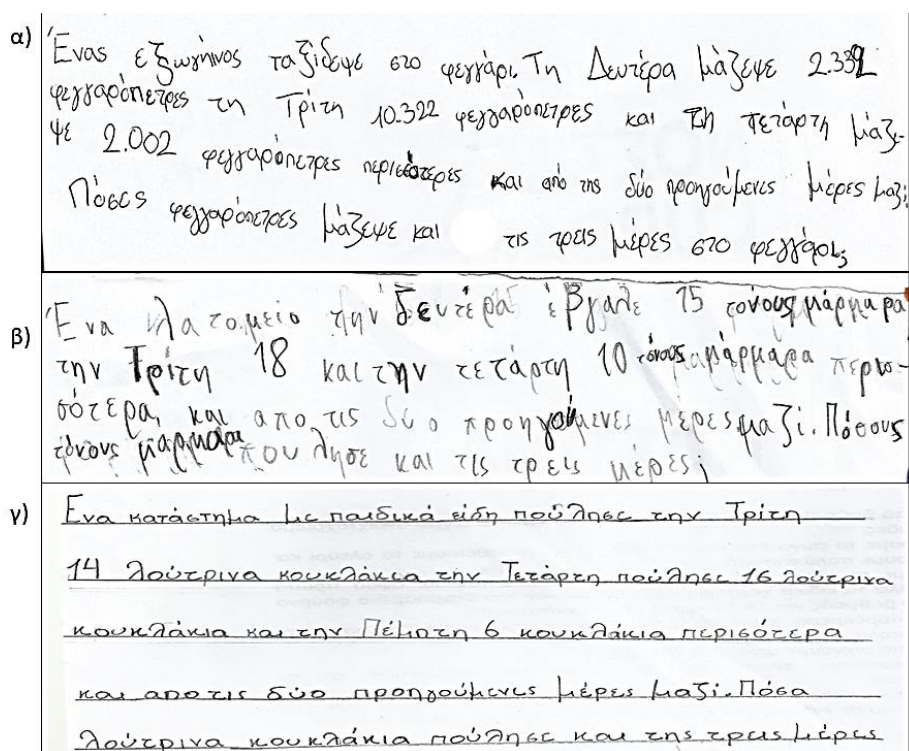 α) Ένας εξωγήινος ταξίδεψε στο φεγγάρι. Τη Δευτέρα μάζεψε 2.332
φεγγαρόπετρες τη Τρίτη 10.322 φεγγαρόπετρες και τη πετάρτη μάζε-
ψε 2.002 φεγγαρόπετρες περισσότερες και από της δύο προηγούμενες μέρες μαζί.
Πόσες φεγγαρόπετρες μάζεψε και τις τρεις μέρες στο φεγγάρι;
β) Ένα λατομείο την δευτέρα έβγαλε 15 τόνους μάρμαρα
την Τρίτη 18 και την τετάρτη 10 τόνους μάρμαρα περισ-
σότερα, και απο τις δύο προηγούμενες μέρες μαζί. Πόσους
τόνους μάρμαρα πουλησε και τις τρεις μέρες;
γ) Ενα κατάστημα με παιδικά είδη πούλησε την Τρίτη
14 λούτρινα κουκλάκια την Τετάρτη πούλησε 16 λούτρινα
κουκλάκια και την Πέμπτη 6 κουκλάκια περισότερα
και απο τις δύο προηγούμενες μέρες μαζί. Πόσα
λούτρινα κουκλάκια πούλησε και της τρεις μέρες